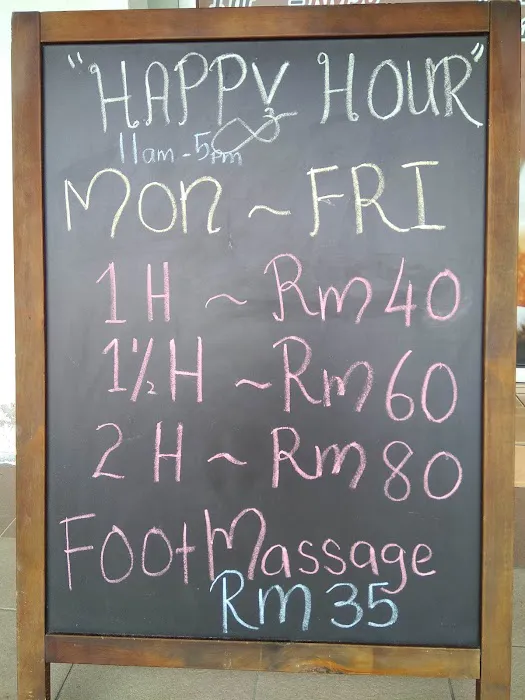 "HAPPY HOUR"
11am - 5pm
MON ~ FRI
1 H ~ Rm 40
1½ H ~ Rm 60
2 H ~ Rm 80
Foot Massage
Rm 35